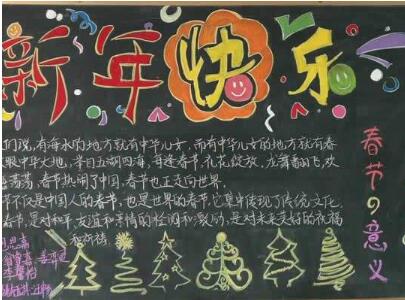 新年快乐
春节の意义
们说,有海水的地方就有中华儿女,而有中华儿女的地方就有春
眼中华大地,举目五湖四海,每逢春节,礼花绽放,龙舞狮飞,欢
荡,春节热闹了中国,春节也正走向世界。
节不仅是中国人的春节,也是世界的春节,它集中体现了传统文化
春节,是对和平、友谊和亲情的 和 ,是对未来美好的祝福
和祈祷